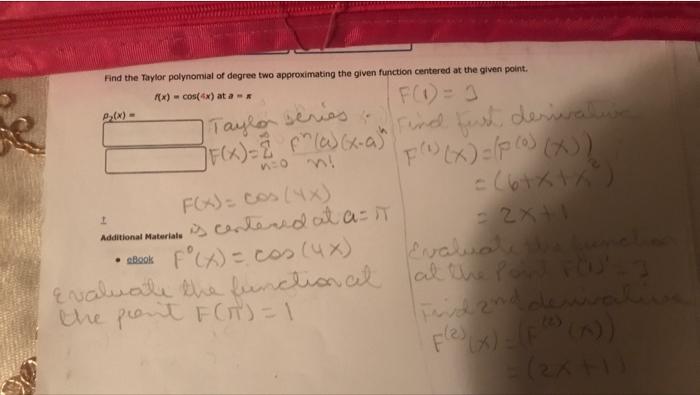 Find the Taylor polynomial of degree two approximating the given function centered at the given point.
f(x) = cos(4x) at a = π
p₂(x) =
Taylor series :-
F(x) = Σ n=0 ∞ Fⁿ(a)(x-a)ⁿ / n!
F(x) = cos(4x)
is centered at a = π
Additional Materials
eBook
F⁰(x) = cos(4x)
Evaluate the function at
the point F(π) = 1
F(1) = 3
Find first derivative
F⁽¹⁾(x) = (F⁽⁰⁾(x))
= (6+x+x²)
= 2x+1
Evaluate the function
at the point F(1)' = 3
Find 2nd derivative
F⁽²⁾(x) = (F⁽²⁾(x))
= (2x+1)